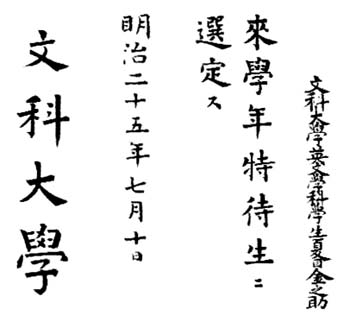 文科大學英文學科學生夏目金之助
來學年特待生ニ
選定ス
明治二十五年七月十日
文科大學